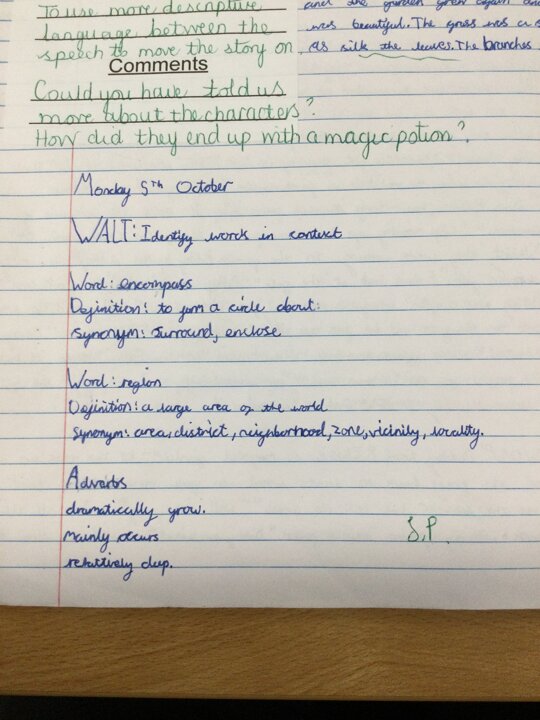 To use more descriptive
language between the
speech to move the story on
Comments
Could you have told us
more about the characters?
How did they end up with a magic potion?
and the garden grew again and
was beautiful. The grass was a s
As silk the leaves. The branches
Monday 5th October
WALT: Identify words in context
Word: encompass
Definition: to form a circle about.
Synonym: surround, enclose
Word: region
Definition: a large area of the world
Synonym: area, district, neighborhood, zone, vicinity, locality.
Adverbs
dramatically grow.
mainly occurs
relatively deep.
S.P.